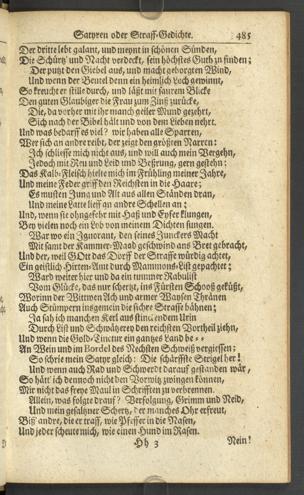 Satyren oder Straff-Gedichte. 485
Der dritte lebt galant, und meynt in schönen Sünden,
Die Schürtz' und Nacht verdeckt, sein höchstes Guth zu finden;
Der putzt den Giebel aus, und macht geborgten Wind,
Und wenn der Beutel denn ein heimlich Loch gewinnt,
So kreucht er stille durch, und läßt mit saurem Blicke
Den guten Gläubiger die Frau zum Zinß zurücke,
Die, da vorher mit ihr manch geiler Mund gezehrt,
Sich nach der Bibel hält und von den Lieben nehrt.
Und was bedarff es viel? wir haben alle Sparren,
Wer sich an andre reibt, der zeigt den größten Narren:
Ich schliesse mich nicht aus, und will auch mein Vergehn,
Jedoch mit Reu und Leid und Besserung, gern gestehn:
Das Kalb-Fleisch hielte mich im Frühling meiner Jahre,
Und meine Feder grieff den Reichsten in die Haare;
Es musten Jung und Alt aus allen Ständen dran,
Und meine Latte lieff an andre Schellen an;
Und, wenn sie ohngefehr mit Haß und Eyfer klungen,
Bey vielen noch ein Lob von meinem Dichten sungen.
War wo ein Ignorant, den seines Junckers Macht
Mit samt der Kammer-Magd geschwind ans Bret gebracht,
Und der, weil GOtt das Dorff der Straffe würdig achtet,
Ein geistlich Hirten-Amt durch Mammons-List gepachtet;
Ward weiter hier und da ein tummer Rabulist
Vom Glücke, das nur schertzt, ins Fürsten Schooß geküßt,
Worinn der Wittwen Ach und armer Waysen Thränen
Auch Stümpern insgemein die sichre Strasse bähnen;
Ja sah ich manchen Kerl aus stinckendem Urin
Durch List und Schwätzerey den reichsten Vortheil ziehn,
Und wenn die Gold-Tinctur ein gantzes Land be--
An Wein und im Bordel des Nechsten Schweiß vergiessen:
So schrie mein Satyr gleich: Die schärffste Geissel her!
Und wenn auch Rad und Schwerdt darauf gestanden wär,
So hätt' ich dennoch nicht den Vorwitz zwingen können,
Mir nicht das freye Maul in Schrifften zu verbrennen.
Allein, was folgte drauf? Verfolgung, Grimm und Neid,
Und mein gesaltzner Schertz, der manches Ohr erfreut,
Biß andre, die er traff, wie Pfeffer in die Nasen,
Und jeder scheute mich, wie einen Hund im Rasen.
Hh 3 Nein!